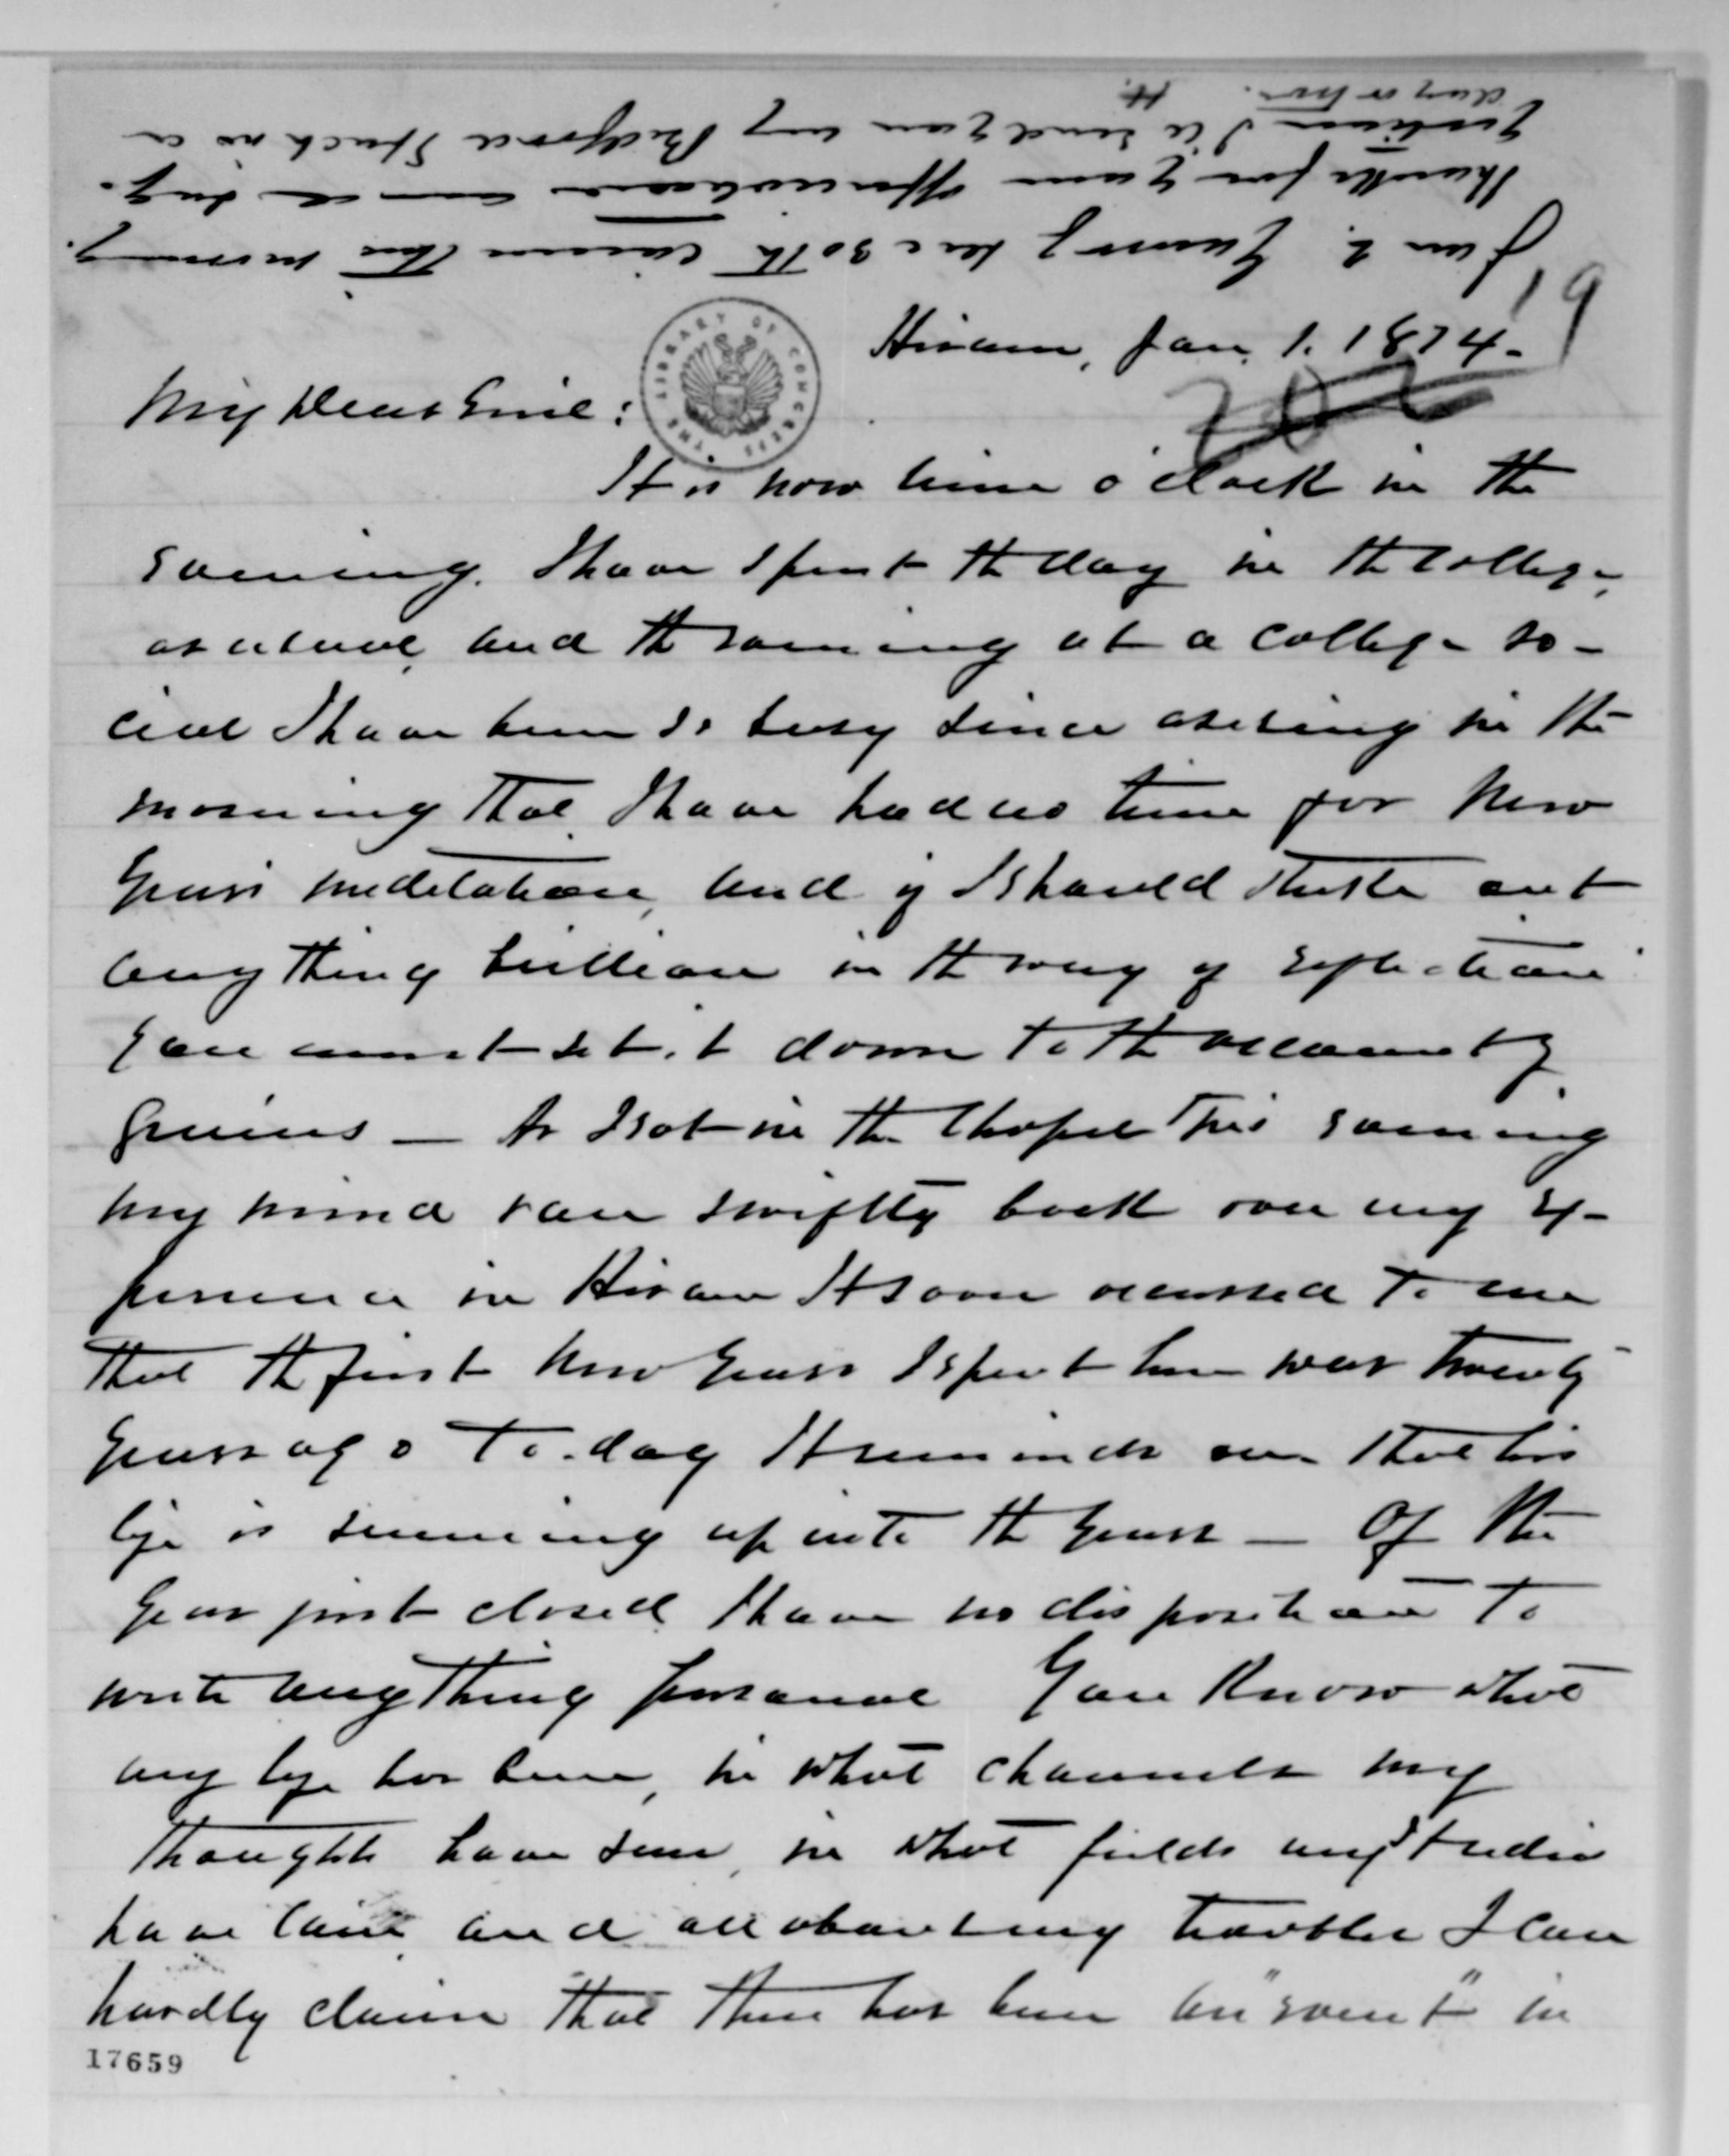 Jan 2. Yours of Dec 30th came this morning.
Thanks for your appreciation on a sug-
gestion I'll send you my Bedford Speech in a
day or two. H.
19
Hiram, Jan. 1. 1874.
My Dear Friend:
THE LIBRARY OF CONGRESS
It is now nine o'clock in the
evening. I have spent the day in the college,
as usual, and the evening at a college so-
cial I have been so busy since arising in the
morning that I have had no time for New
Years meditation, and if I should strike out
anything brilliant in the way of reflection
you must set it down to the account of
genius — As I sat in the Chapel this evening
my mind ran swiftly back over my ex-
perience in Hiram It soon occurred to me
that the first New Years I spent here was twenty
years ago to-day It reminds me that his
life is running up into the years — Of the
year just closed I have no disposition to
write anything personal You know what
my life has been, in what channels my
thoughts have run, in what fields my studies
have lain and
hardly claim that there has been an "event" in
17659